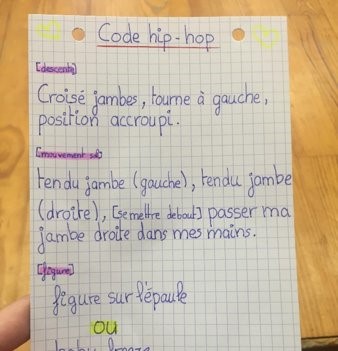 Code hip-hop
[descente]
Croisé jambes, tourne à gauche,
position accroupi.
[mouvement sol]
tendu jambe (gauche), tendu jambe
(droite), [se mettre debout] passer ma
jambe droite dans mes mains.
[figure]
figure sur l'épaule
OU
baby freeze